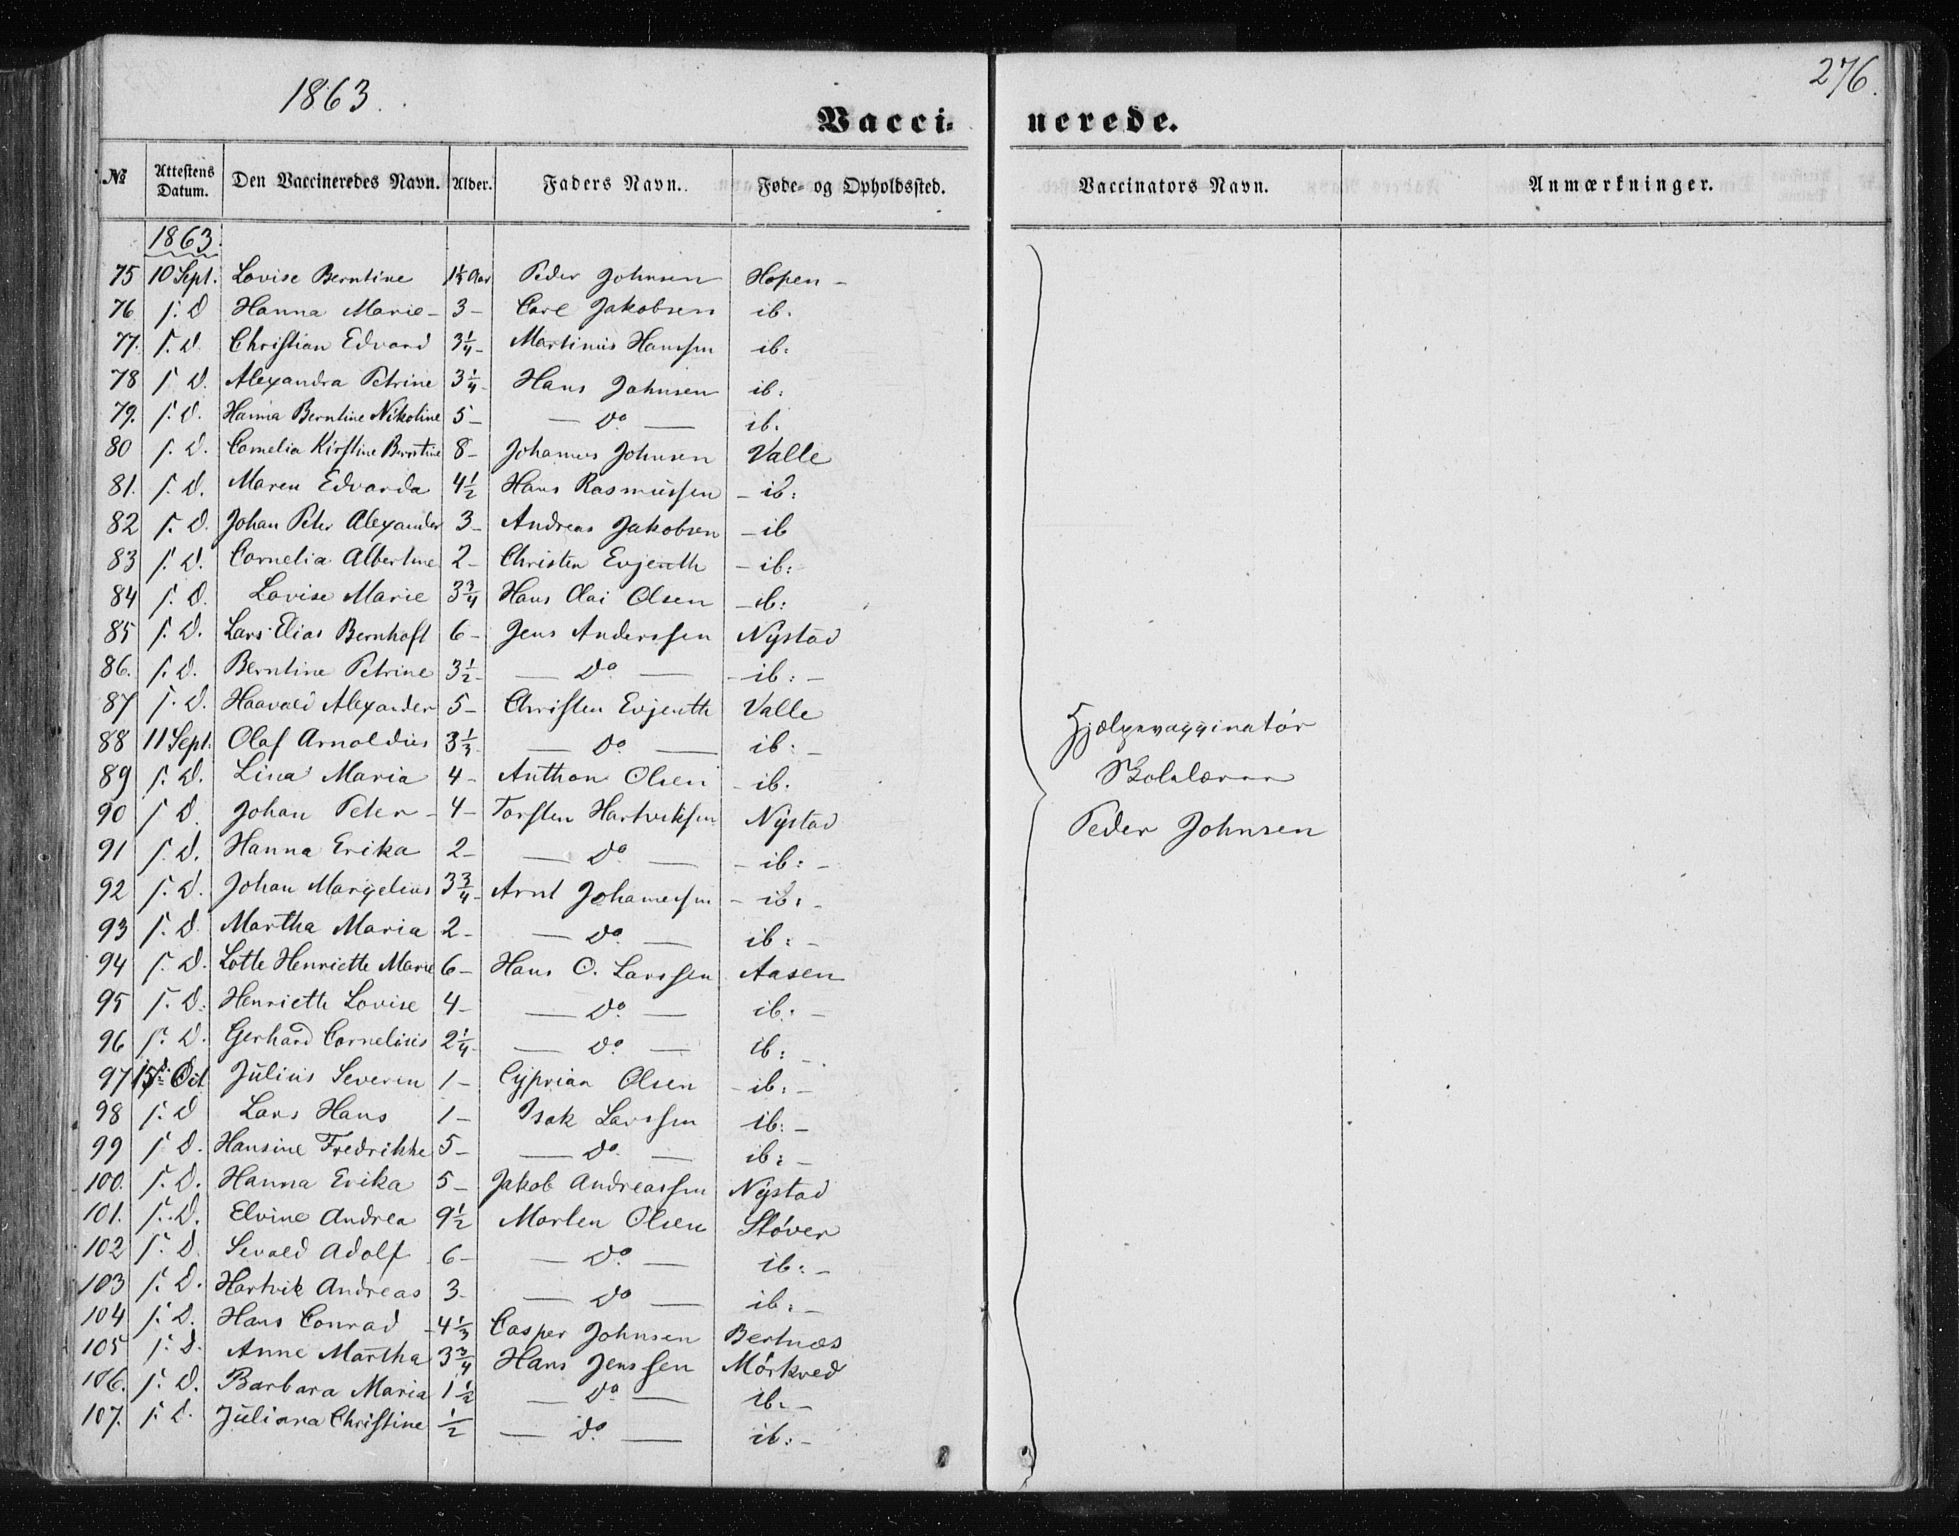 1863.
276.
Vaccinerede.
№ Attestens Datum. Den Vaccineredes Navn. Alder. Faders Navn. Føde- og Opholdssted. Vaccinators Navn. Anmærkninger.
1863.
75 10 Sept. Lovise Berntine Aar Peder Johnsen Hopen -
76 s. D Hanna Marie - 3 - Carl Jakobsen ib.
77. s. D. Christian Edvard 3 1/4 - Martinus Hanssen ib:
78 s D. Alexandra Petrine 3 1/4 - Hans Johnsen ib:
79. s. D. Hanna Berntine Nikoline 5 - — Do — ib.
80 s. D. Cornelia Kirstine Berntine 8 - Johannes Johnsen Valle
81. s. D. Maren Edvarda 4 1/2 Hans Rasmussen - ib:
82 s. D. Johan Peter Alexander 3 - Andreas Jakobsen - ib
83 s. D. Cornelia Albertine 2 - Christen Evjenth - ib:
84 s. D. Lovise Marie 3 3/4 Hans Olai Olsen - ib:
85 s. D. Lars Elias Bernhoft 6 - Jens Anderssen Nystad
86. s. D. Berntine Petrine 3 1/2 - — Do — - ib: -
87 s. D. Haavald Alexander 5 - Christen Evjenth Valle
88 11 Sept. Olaf Arnoldus 3 1/3 - — Do. — ib: -
89 s. D. Lina Maria 4 - Anthon Olsen - ib.
90 s D. Johan Peter - 4 - Torsten Hartviksen Nystad
91 s. D. Hanna Erika 2 - — Do — - ib: -
92 s. D. Johan Margelius 3 3/4 - Arnt Johannessen - ib: -
93 s. D. Martha Maria 2 - — Do. — ib: -
94 s. D. Lotte Henriette Marie 6 - Hans O. Larssen Aasen
95 s. D: Henriette Lovise 4 - — Do. — ib. -
96 s. D. Gerhard Cornelius 2 1/4 - — Do. — ib: -
97 15de Oct Julius Severin 1 - Cyprian Olsen - ib: -
98 s. D Lars Hans 1 - Isak Larssen ib: -
99 s D. Hansine Fredrikke 5 - — Do. — ib: -
100. s. D. Hanna Erika 5 - Jakob Andreassen Nystad
101. s. D. Elvine Andrea 9 1/2 Morten Olsen Støver
102 s. D. Sevald Adolf 6 - — Do. — ib: -
103 s. D. Hartvik Andreas 3 - — Do — ib: -
104 s. D. Hans Conrad - 4 1/3 Casper Johnsen Bertnæs
105 s. D. Anne Martha 3 3/4 Hans Jenssen Mørkved
106. s. D. Barbara Maria 1 1/2 — Do — ib. -
107. s. D. Juliana Christine 1/2 — Do. — ib: -
Hjælpevaccinatør
Skolelærer
Peder Johnsen